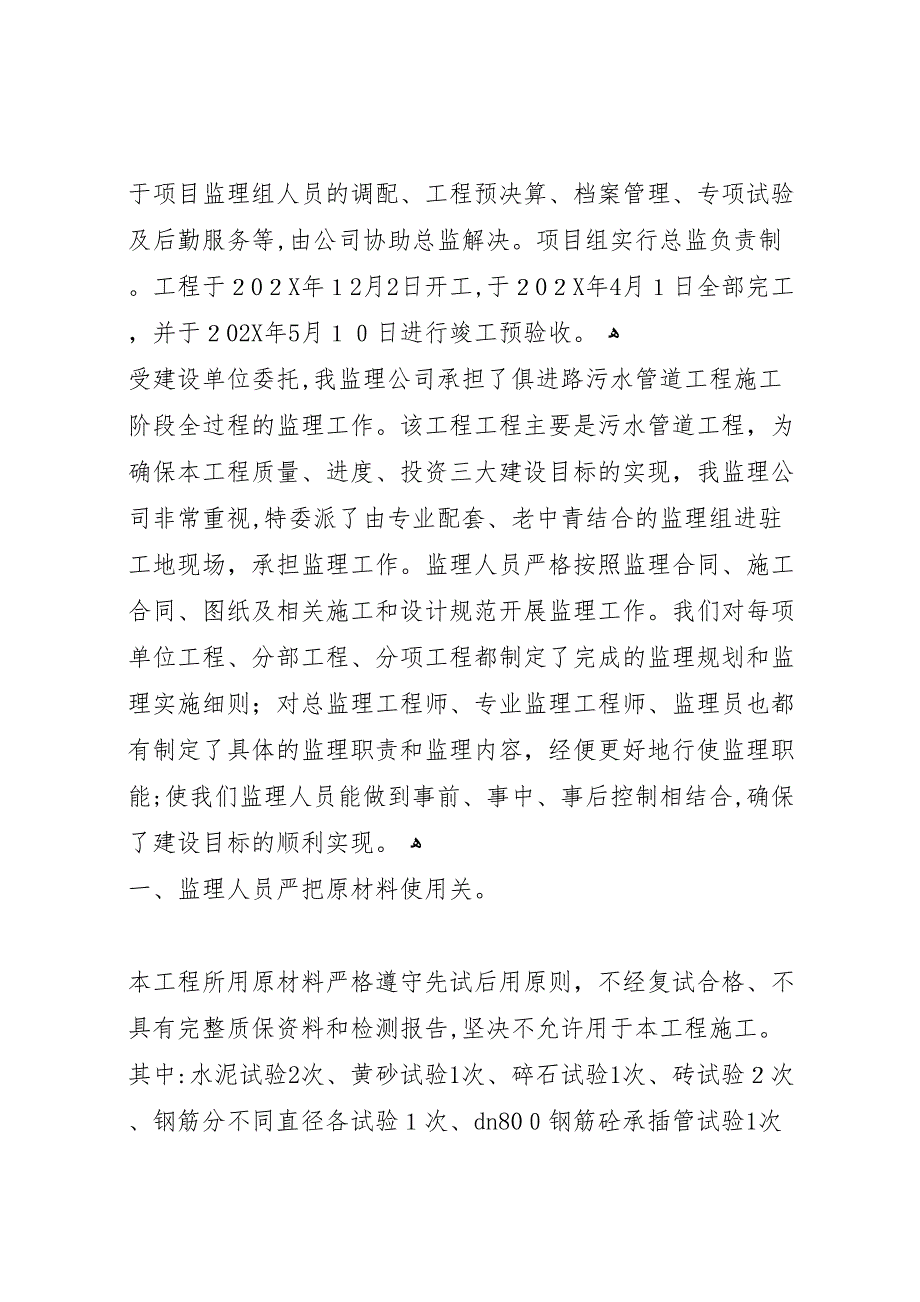 于项目监理组人员的调配、工程预决算、档案管理、专项试验
及后勤服务等,由公司协助总监解决。项目组实行总监负责制
。工程于２０２X年１２月２日开工,于２０２X年4月１日全部完工
，并于２０２X年5月１０日进行竣工预验收。 ﻫ
受建设单位委托,我监理公司承担了俱进路污水管道工程施工
阶段全过程的监理工作。该工程工程主要是污水管道工程，为
确保本工程质量、进度、投资三大建设目标的实现，我监理公
司非常重视,特委派了由专业配套、老中青结合的监理组进驻
工地现场，承担监理工作。监理人员严格按照监理合同、施工
合同、图纸及相关施工和设计规范开展监理工作。我们对每项
单位工程、分部工程、分项工程都制定了完成的监理规划和监
理实施细则；对总监理工程师、专业监理工程师、监理员也都
有制定了具体的监理职责和监理内容，经便更好地行使监理职
能;使我们监理人员能做到事前、事中、事后控制相结合,确保
了建设目标的顺利实现。 ﻫ
一、监理人员严把原材料使用关。
本工程所用原材料严格遵守先试后用原则，不经复试合格、不
具有完整质保资料和检测报告,坚决不允许用于本工程施工。
其中:水泥试验2次、黄砂试验1次、碎石试验1次、砖试验２次
、钢筋分不同直径各试验１次、dn80０钢筋砼承插管试验1次